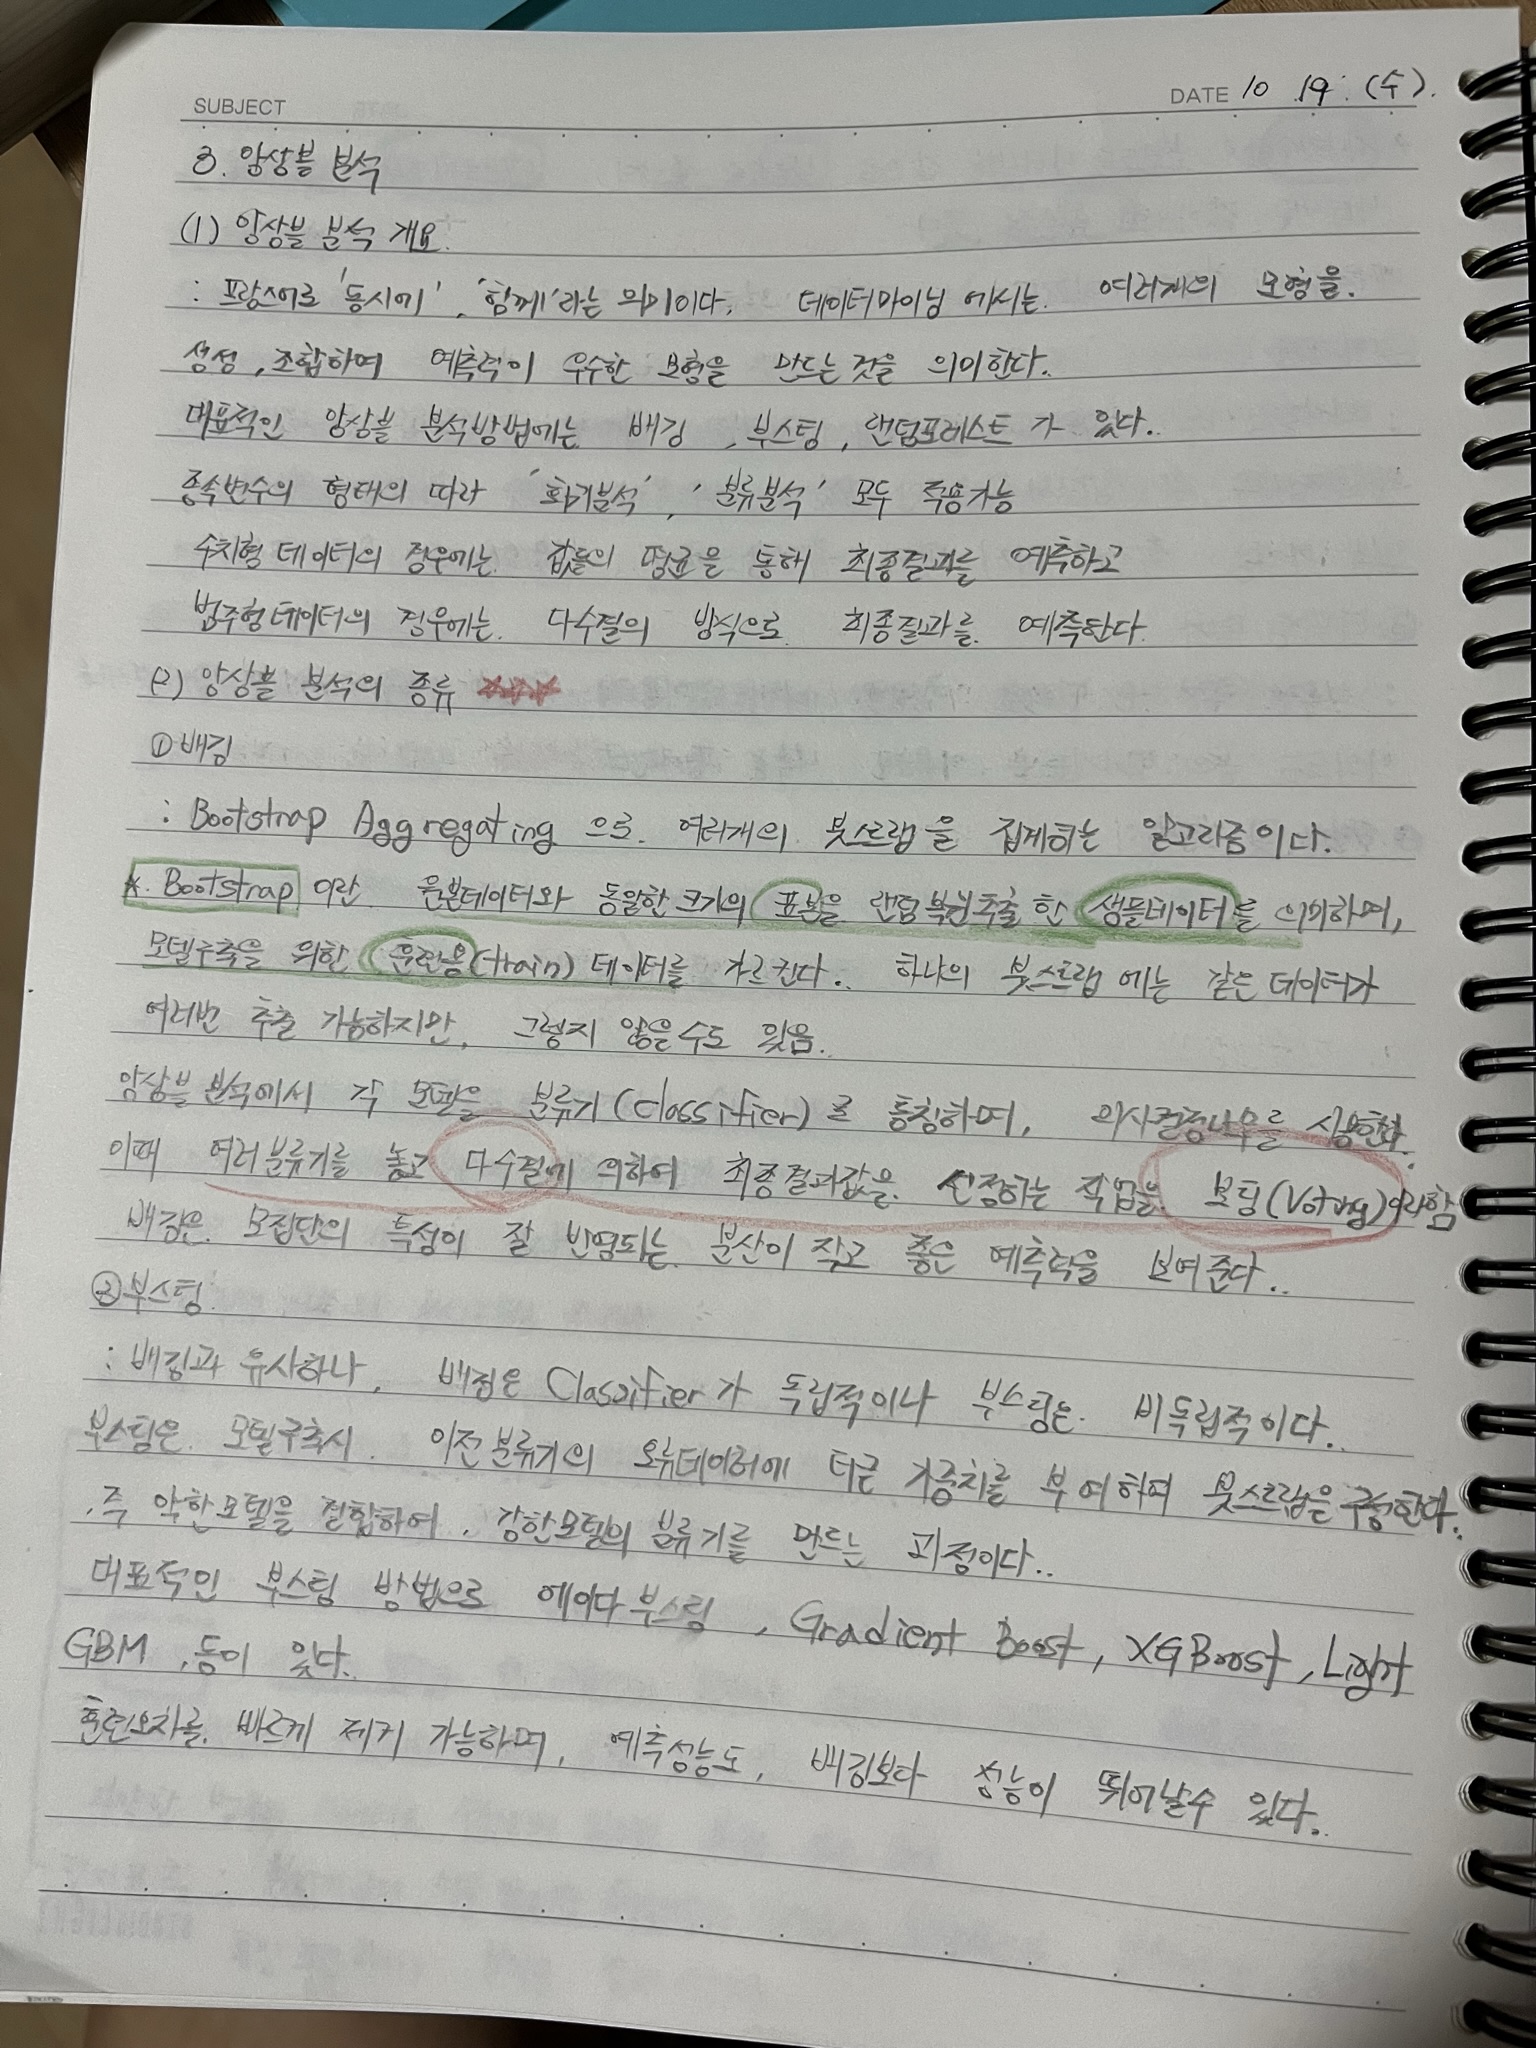 SUBJECT
DATE 10 .19. (수).
3. 앙상블 분석
(1) 앙상블 분석 개요.
: 프랑스어로 '동시에', '함께'라는 의미이다. 데이터마이닝 에서는. 여러개의 모형을.
생성, 조합하여 예측력이 우수한 모형을 만드는 것을 의미한다..
대표적인 앙상블 분석방법에는 배깅, 부스팅, 랜덤포레스트가 있다..
종속변수의 형태의 따라 '회귀분석', '분류분석' 모두 적용가능
수치형 데이터의 경우에는. 값들의 평균을 통해 최종결과를 예측하고
범주형데이터의 경우에는. 다수결의 방식으로. 최종결과를. 예측한다.
(2) 앙상블 분석의 종류 ☆☆☆
① 배깅
: Bootstrap Aggregating 으로. 여러개의 붓스트랩을 집계하는 알고리즘이다.
*. Bootstrap 이란. 원본데이터와 동일한 크기의 표본을 랜덤복원추출 한 샘플데이터를 의미하며,
모델구축을 위한 훈련용(train) 데이터를 가르킨다.. 하나의 붓스트랩 에는 같은 데이터가
여러번 추출 가능하지만, 그렇지 않을수도 있음..
앙상블 분석에서 각 모델을 분류기(Classifier)로 통칭하며, 의사결정나무를 사용한다.
이때 여러분류기를 놓고 다수결에 의하여 최종결과값을. 선정하는 작업을. 보팅(Voting)이라함
배깅은. 모집단의 특성이 잘 반영되는. 분산이 작고 좋은 예측력을 보여준다..
② 부스팅.
: 배깅과 유사하나, 배깅은 Classifier가 독립적이나 부스팅은. 비독립적이다..
부스팅은. 모델구축시. 이전분류기의 오류데이터에 더큰 가중치를 부여하며 붓스트랩을구성한다.
.즉 약한모델을 결합하여, 강한모델의 분류기를 만드는 과정이다..
대표적인 부스팅 방법으로 에이다부스팅, Gradient Boost, XGBoost, Light
GBM, 등이 있다.
훈련오차를. 빠르게 제거 가능하며, 예측성능도, 배깅보다 성능이 뛰어날수 있다..